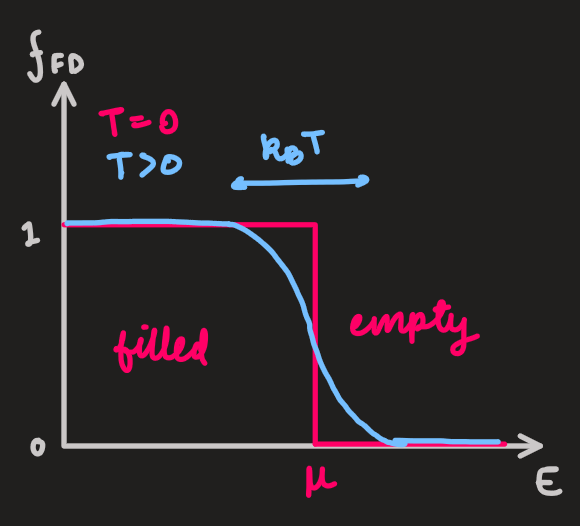 f_FD
T=0
T>0
k_BT
1
filled
empty
0
μ
E